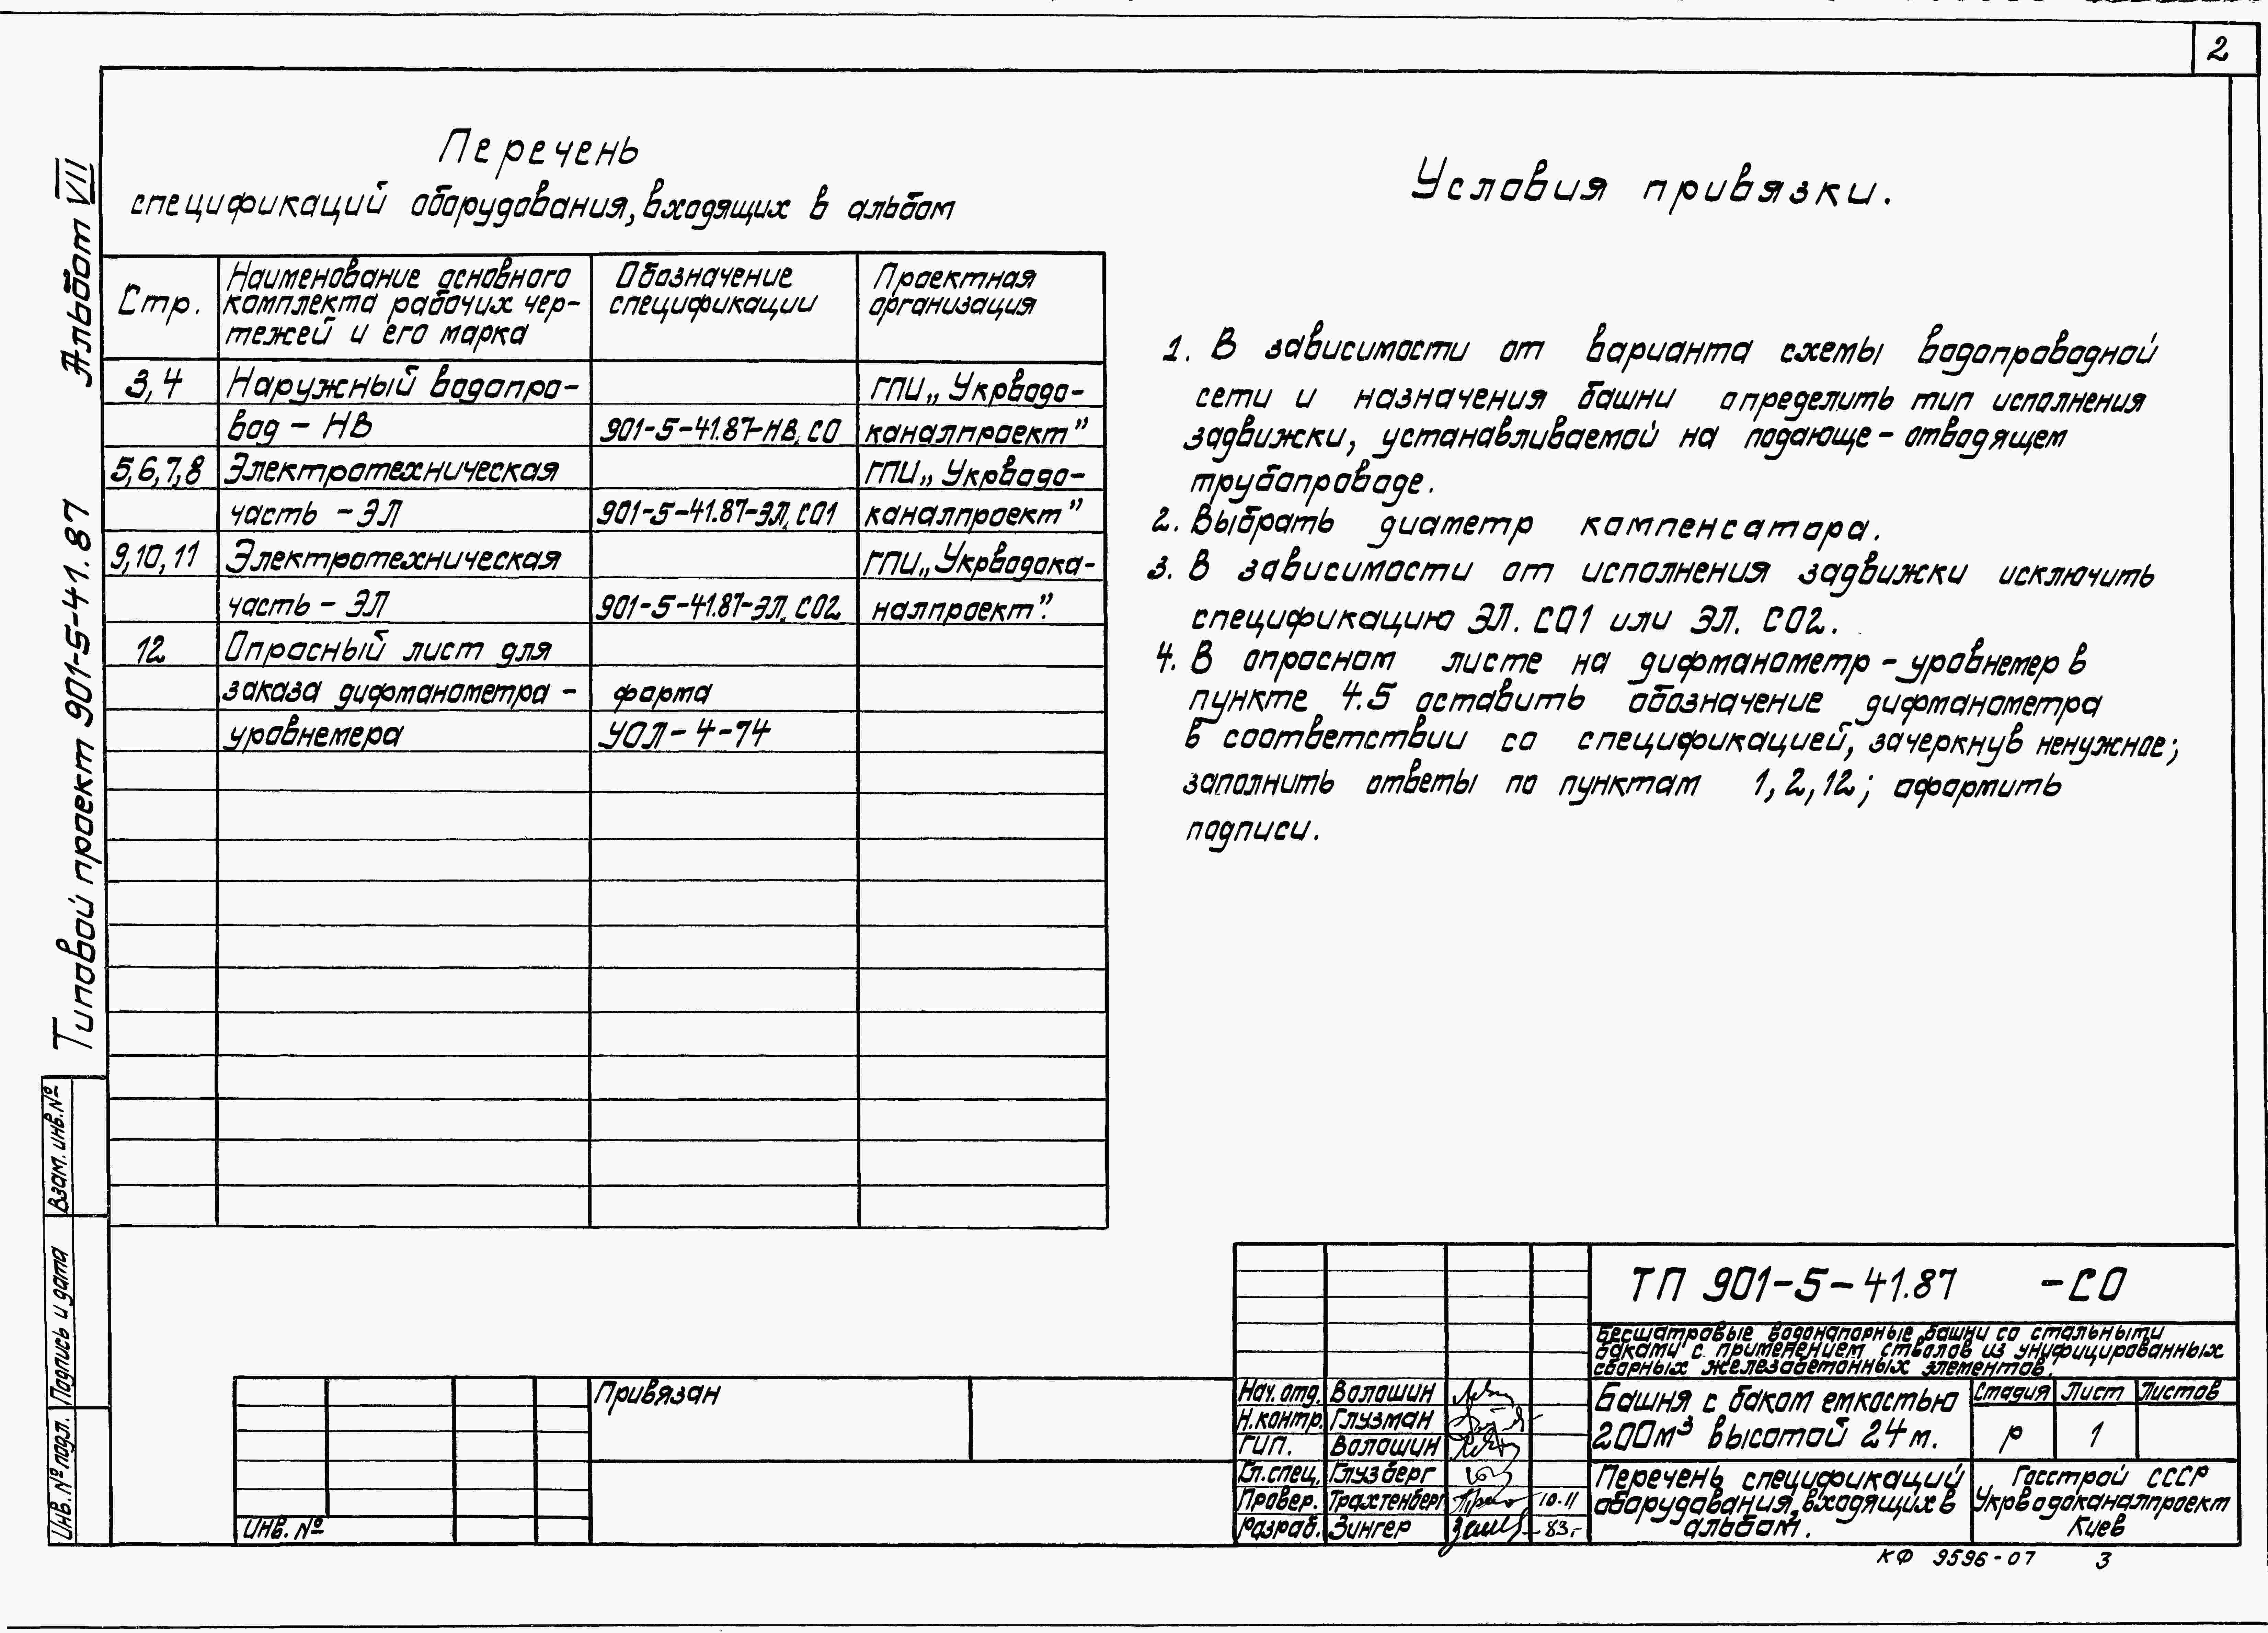 2
Альбом VII
Типовой проект 901-5-41.87
Взам. инв. №
Подпись и дата
Инв. № подл.
Перечень
спецификаций оборудования, входящих в альбом
Стр.
Наименование основного
комплекта рабочих чер-
тежей и его марка
Обозначение
спецификации
Проектная
организация
3,4 Наружный водопро- ГПИ „Укрводо-
вод - НВ 901-5-41.87-НВ.СО каналпроект”
5,6,7,8 Электротехническая ГПИ „Укрводо-
часть - ЭЛ 901-5-41.87-ЭЛ.СО1 каналпроект”
9,10,11 Электротехническая ГПИ „Укрводока-
часть - ЭЛ 901-5-41.87-ЭЛ.СО2 налпроект”.
12 Опросный лист для
заказа дифманометра - форма
уровнемера УОЛ-4-74
Условия привязки.
1. В зависимости от варианта схемы водопроводной
сети и назначения башни определить тип исполнения
задвижки, устанавливаемой на подающе-отводящем
трубопроводе.
2. Выбрать диаметр компенсатора.
3. В зависимости от исполнения задвижки исключить
спецификацию ЭЛ.СО1 или ЭЛ.СО2.
4. В опросном листе на дифманометр-уровнемер в
пункте 4.5 оставить обозначение дифманометра
в соответствии со спецификацией, зачеркнув ненужное;
заполнить ответы по пунктам 1, 2, 12; оформить
подписи.
Привязан
ИНВ. №
ТП 901-5-41.87 -СО
Бесшатровые водонапорные башни со стальными
баками с применением стволов из унифицированных
сборных железобетонных элементов.
Нач. отд. Волошин
Н.контр. Глузман
ГИП. Волошин
Гл.спец. Глузберг
Провер. Трахтенберг 10.11
Разраб. Зингер 83г
Башня с баком емкостью
200м³ высотой 24м.
Стадия Лист Листов
Р 1
Перечень спецификаций
оборудования, входящих в
альбом.
Госстрой СССР
Укрводоканалпроект
Киев
КФ 9596-07 3